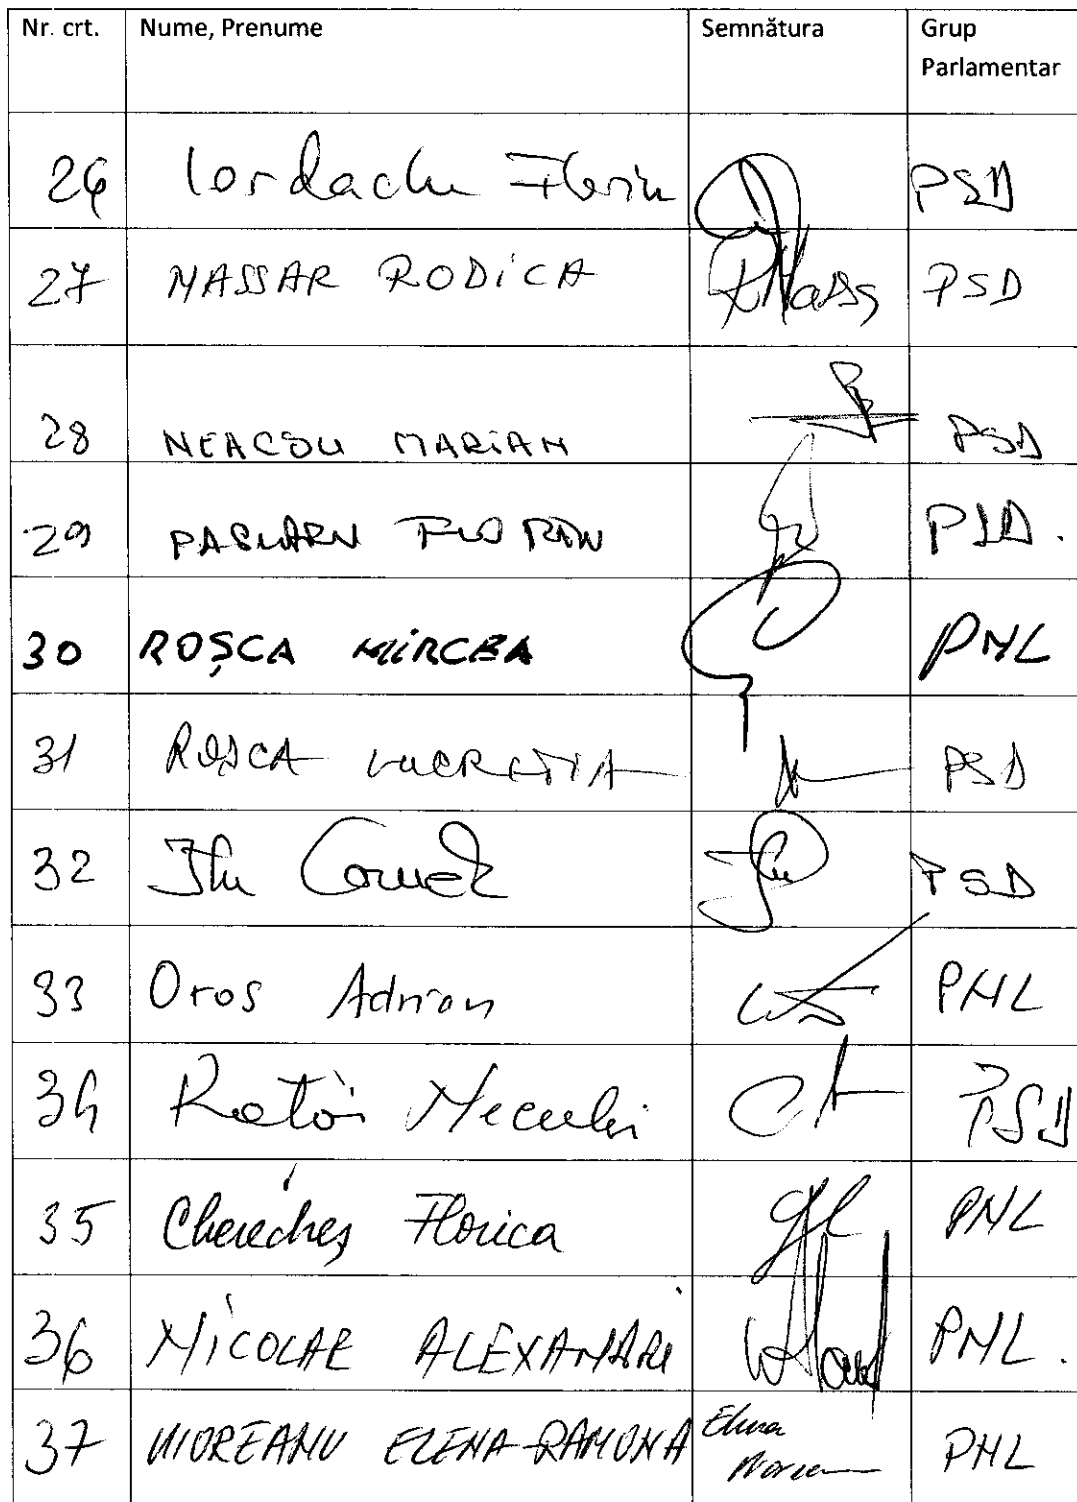 Nr. crt. Nume, Prenume Semnătura Grup Parlamentar
26 Iordache Florin PSD
27 NASSAR RODiCA PSD
28 NEACSU MARiAN PSD
29 PSD.
30 ROȘCA MiRCEA PNL
31 ROȘCA LUCREȚIA PSD
32 Itu Cornel PSD
33 Oros Adrian PNL
34 PSD
35 Cherecheș Florica PNL
36 NiCOLAE ALEXANDRU PNL.
37 ELENA-RAMONA Elena PNL